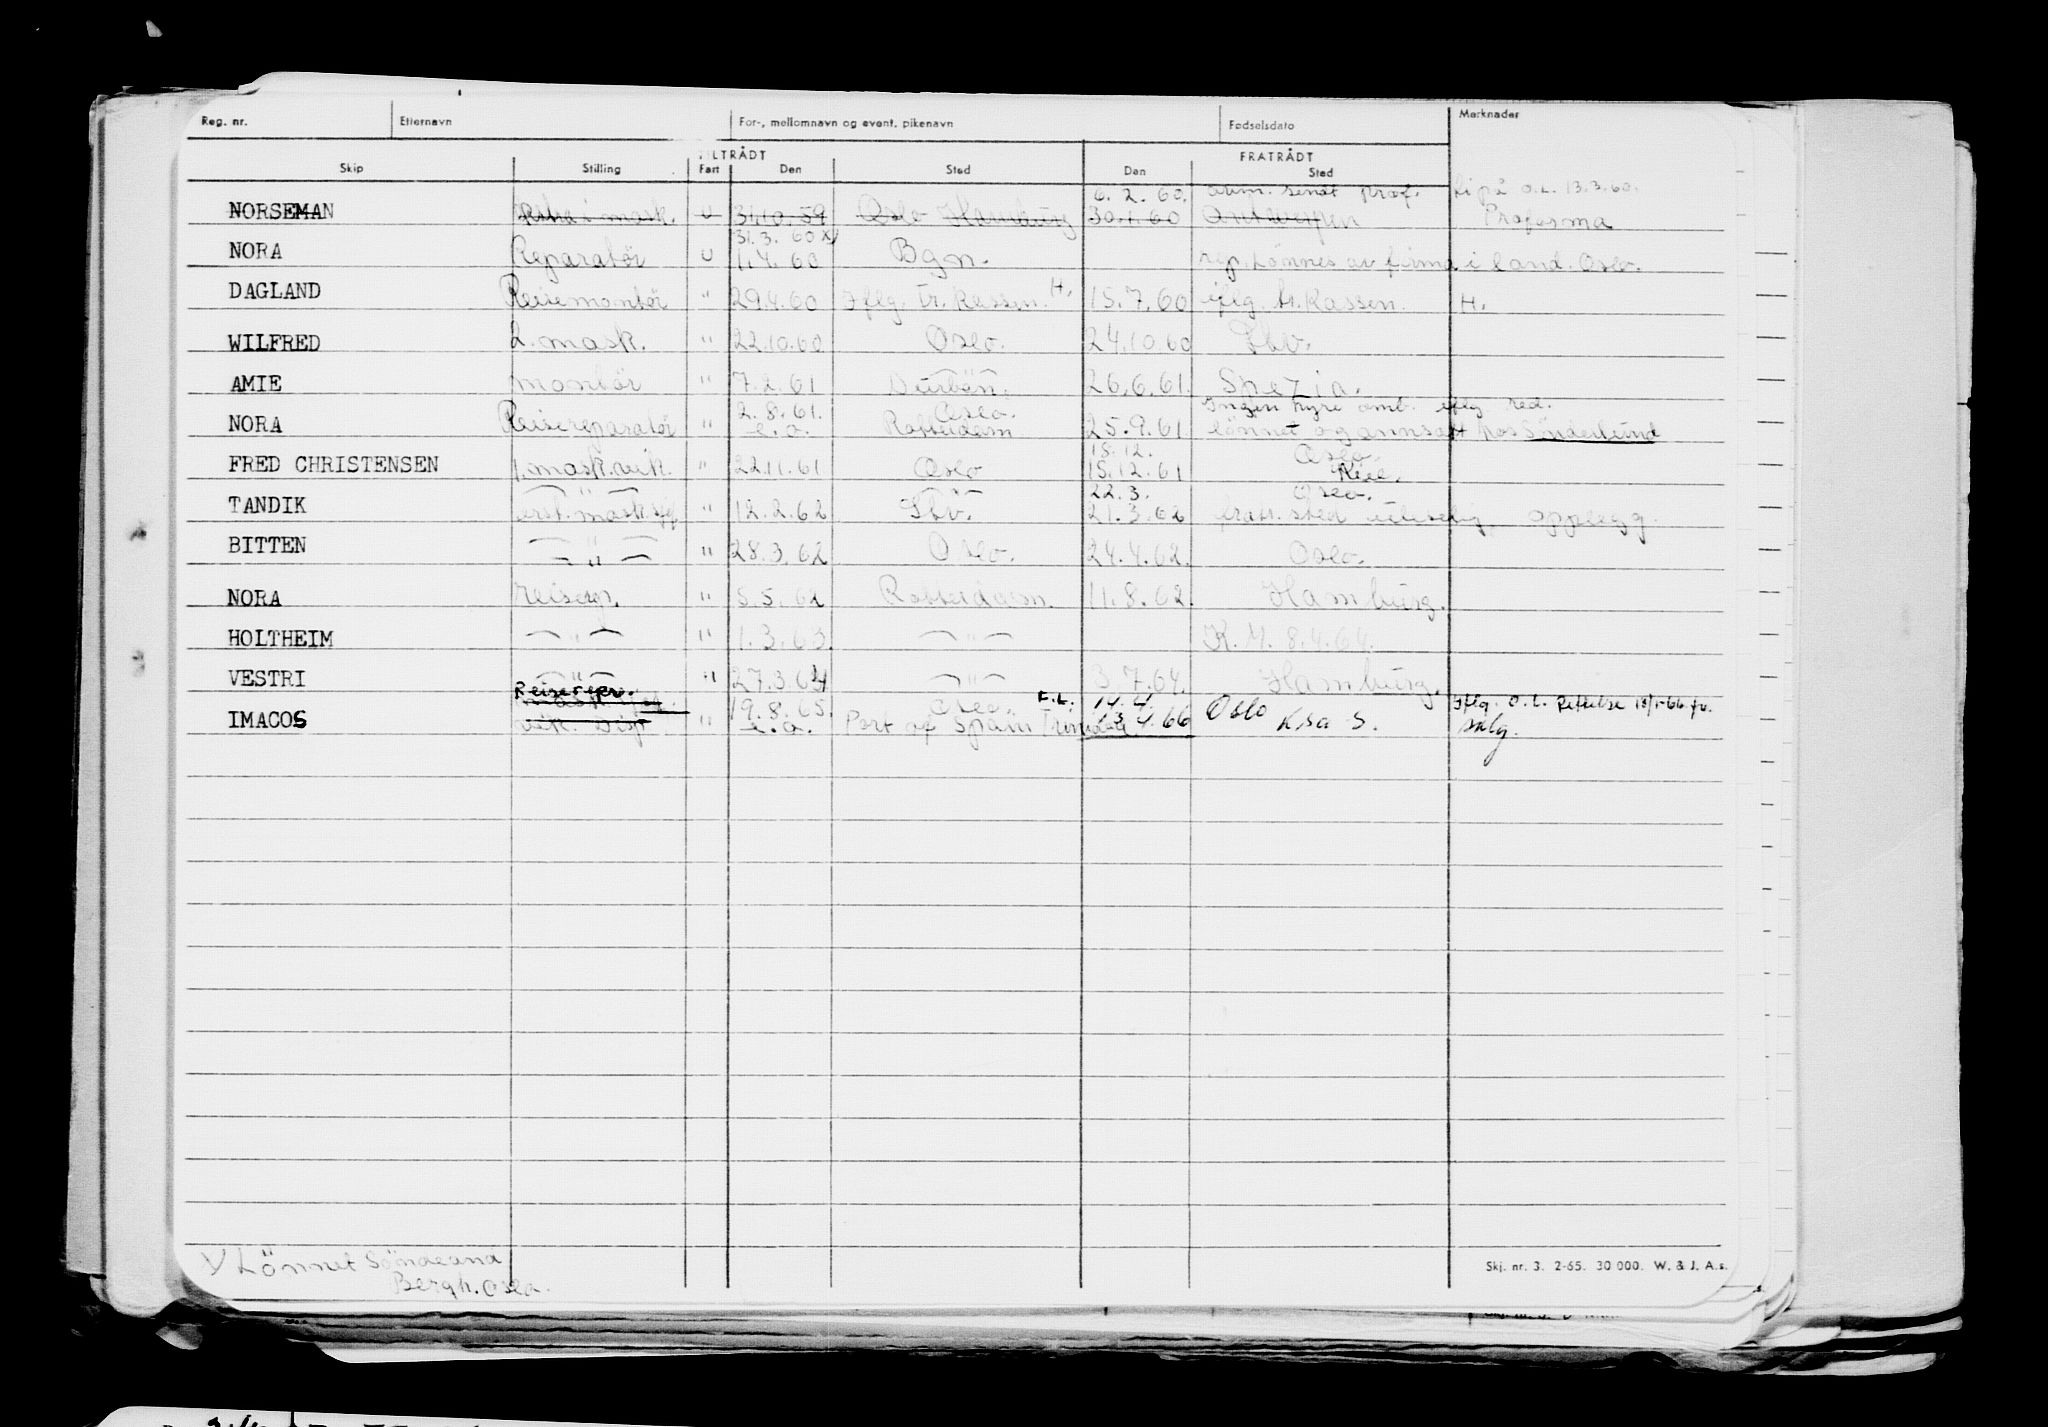 Reg. nr. Etternavn For-, mellomnavn og event. pikenavn Fødselsdato Merknader
TILTRÅDT FRATRÅDT
Skip Stilling Fart Den Sted Den Sted
6.2.60. prof. O.L. 13.3.60.
NORSEMAN i mask. U 31.10.59 Oslo Hamburg 30.1.60 Antwerpen Proforma
31.3.60 x)
NORA Reparatör U 1.4.60 Bgn. rep. Lönnes av firma i land. Oslo.
DAGLAND Reisemontör " 29.4.60 Iflg. tr. Kassen. H. 15.7.60 iflg. tr. Kassen. H.
WILFRED 2. mask. " 22.10.60 Oslo. 24.10.60 Sbv.
AMIE montör " 7.2.61 Durban. 26.6.61. Spezia.
2.8.61. Oslo. Ingen hyre omb. iflg. red.
NORA Reisereparatör " e.o. Rotterdam 25.9.61 lönnet og annsatt hos Sönderlund
18.12. Oslo.
FRED CHRISTENSEN 1. mask. vik. " 22.11.61 Oslo 15.12.61 Kiel.
22.3. Oslo.
TANDIK " 12.2.62 Sbv. 21.3.62 fratr. sted opplegg.
BITTEN — " — " 28.3.62 Oslo. 24.4.62. Oslo.
NORA reisrep. " 5.5.62 Rotterdam 11.8.62. Hamburg.
HOLTHEIM — " — " 1.3.63. — " — K.M. 8.4.64.
VESTRI — " — " 27.3.64 — " — 3.7.64. Hamburg.
Reiserepr. 19.8.65. Oslo. E.L. 14.4. Iflg. O.L. Rettelse 18/1-66 fv.
IMACOS vik. Disp. " e.o. Port of Spain Trinidad 13.4.66 Oslo Ksa S. sklg.
x) Lönnet
Bergh. Oslo.
Skj. nr. 3. 2-65. 30 000. W. & J. A.s.